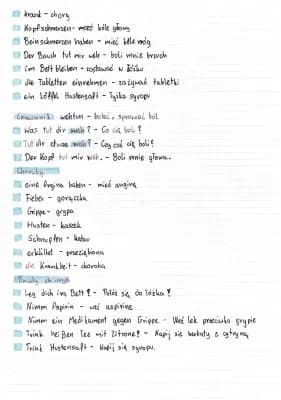 krank - chory
Kopfschmerzen - bóle głowy
Beinschmerzen haben - mieć bóle nóg
Der Bauch tut mir weh - boli mnie brzuch
im Bett bleiben - zostawać w łóżku
die Tabletten einnehmen - zażywać tabletki
ein Löffel Hustensaft - łyżka syropu
Czasownik wehtun - boleć, sprawiać ból
Was tut dir weh? - Co cię boli?
Tut dir etwas weh? - Czy coś cię boli?
Der Kopf tut mir weh. - Boli mnie głowa.
Choroby
eine Angina haben - mieć anginę
Fieber - gorączka
Grippe - grypa
Husten - kaszel
Schnupfen - katar
erkältet - przeziębiona
die Krankheit - choroba
Leg dich ins Bett! - Połóż się do łóżka!
Nimm Aspirin - weź aspirynę
Nimm ein Medikament gegen Grippe - Weź lek przeciwko grypie
Trink heißen Tee mit Zitrone! - Napij się herbaty z cytryną
Trink Hustensaft - Napij się syropu.